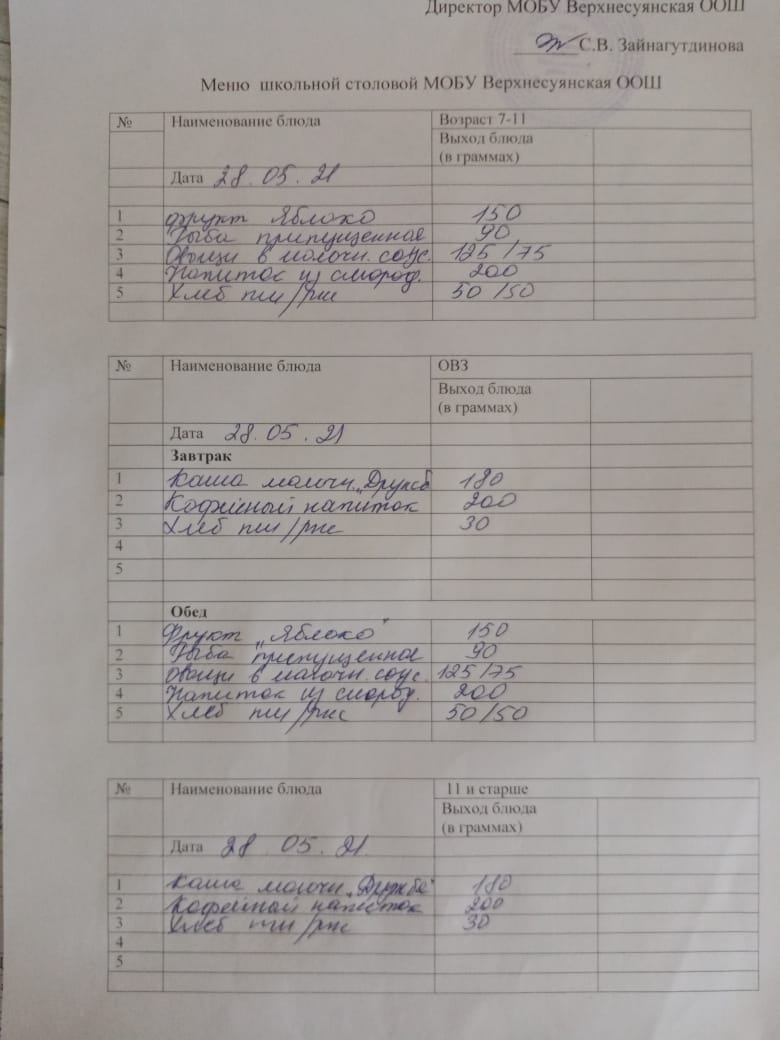 Директор МОБУ Верхнесуянская ООШ
С.В. Зайнагутдинова
Меню школьной столовой МОБУ Верхнесуянская ООШ
№ Наименование блюда Возраст 7-11
Выход блюда
(в граммах)
Дата 28.05.21
1 фрукт Яблоко 150
2 Рыба припущенная 90
3 Овощи в молочн. соус. 125/75
4 Напиток из смород. 200
5 Хлеб пш/рж 50/50
№ Наименование блюда ОВЗ
Выход блюда
(в граммах)
Дата 28.05.21
Завтрак
1 Каша молочн. „Дружб 180
2 Кофейный напиток 200
3 Хлеб пш/рж 30
4
5
Обед
1 Фрукт „Яблоко" 150
2 Рыба припущенная 90
3 Овощи в молочн. соус. 125/75
4 Напиток из смород. 200
5 Хлеб пш/рж 50/50
№ Наименование блюда 11 и старше
Выход блюда
(в граммах)
Дата 28.05.21
1 Каша молочн „Дружба" 180
2 Кофейный напиток 200
3 Хлеб пш/рж 30
4
5